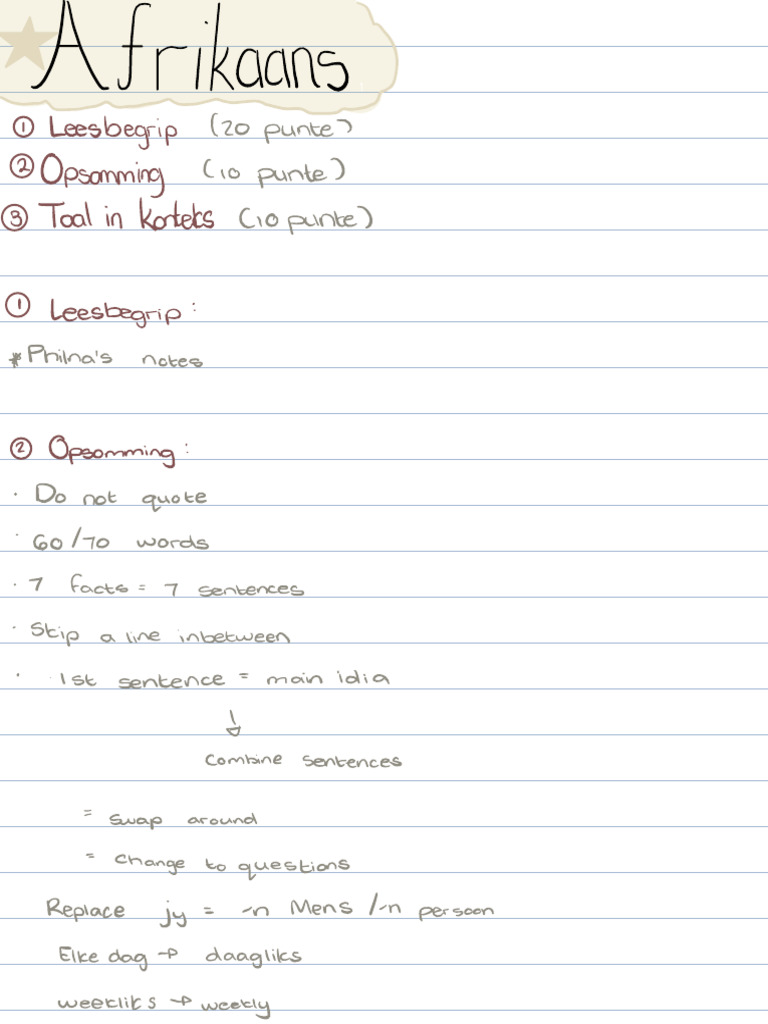 Afrikaans
① Leesbegrip (20 punte)
② Opsomming (10 punte)
③ Taal in Konteks (10 punte)
① Leesbegrip:
* Philna's notes
② Opsomming:
· Do not quote
· 60/70 words
· 7 facts = 7 sentences
· Skip a line inbetween
· 1st sentence = main idia
↓
Combine sentences
= swap around
= change to questions
Replace jy = -n Mens /-n persoon
Elke dag → daagliks
weekliks → weekly